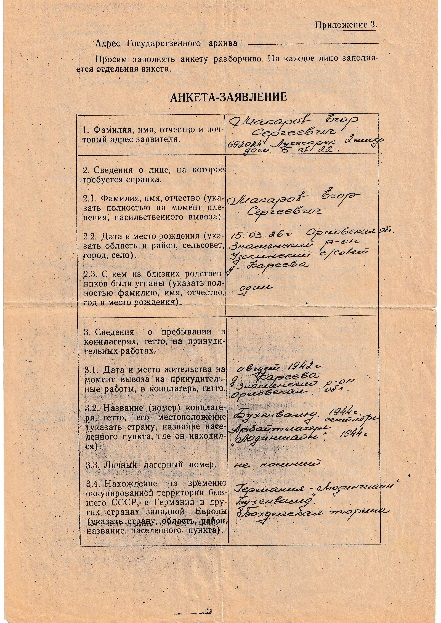 Приложение 2.
Адрес Государственного архива
Просим заполнять анкету разборчиво. На каждое лицо заполня-
ется отдельная анкета.
АНКЕТА-ЗАЯВЛЕНИЕ
1. Фамилия, имя, отчество и поч-
товый адрес заявителя.
Макаров Егор
Сергеевич
2. Сведения о лице, на которое
требуется справка.
2.1. Фамилия, имя, отчество (ука-
зать полностью на момент пле-
нения, насильственного вывоза).
Макаров Егор
Сергеевич
2.2. Дата и место рождения (ука-
зать область и район, сельсовет,
город, село).
15.03.26г Орловская об.
Знаменский р-он
с/совет
2.3. С кем из близких родствен-
ников были угнаны (указать пол-
ностью фамилию, имя, отчество,
год и место рождения).
один
3. Сведения о пребывании в
концлагерях, гетто, на принуди-
тельных работах.
3.1. Дата и место жительства на
момент вывоза на принудитель-
ные работы, в концлагерь, гетто.
август 1942г
Знаменский р-он
Орловская об.
3.2. Название (номер) концлаге-
ря, гетто, его местоположение
(указать страну, название насе-
ленного пункта, где он находил-
ся).
Бухенвальд 1944г
1944г
3.3. Личный лагерный номер.
не помнит
3.4. Нахождение на временно
оккупированной территории быв-
шего СССР, в Германии и дру-
гих странах Западной Европы
(указать страну, область, район,
название населенного пункта).
Германия
тюрьма